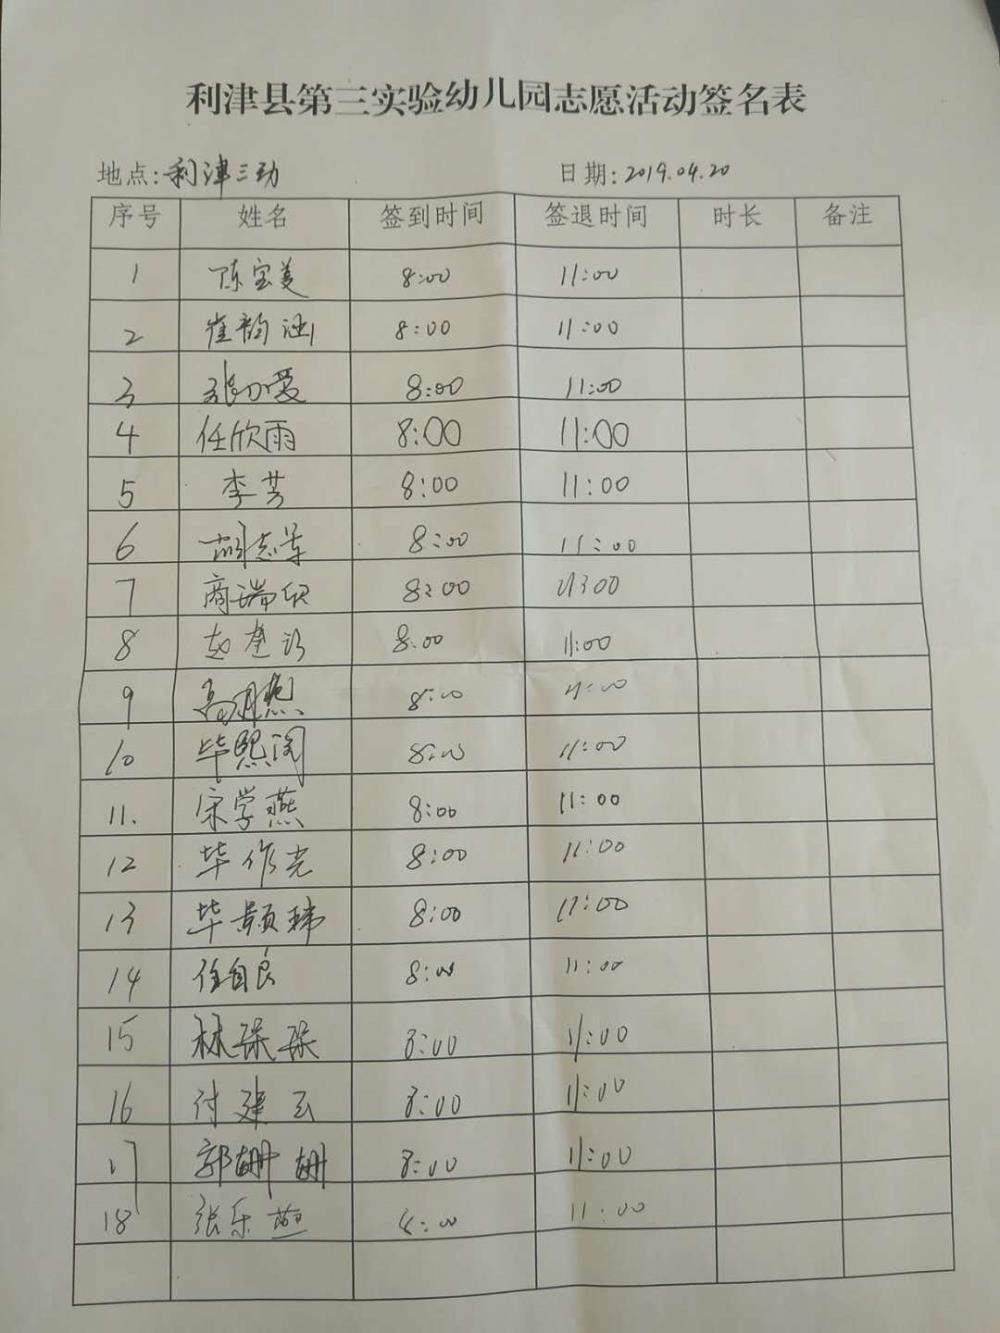 利津县第三实验幼儿园志愿活动签名表
地点:利津三幼 日期:2019.04.20
序号 姓名 签到时间 签退时间 时长 备注
1 陈宝美 8:00 11:00
2 崔韵涵 8:00 11:00
3 8:00 11:00
4 任欣雨 8:00 11:00
5 李芳 8:00 11:00
6 8:00 11:00
7 商瑞欣 8:00 11:00
8 8:00 11:00
9 高月燕 8:00 11:00
10 毕熙阅 8:00 11:00
11. 宋学燕 8:00 11:00
12 毕作光 8:00 11:00
13 毕颢玮 8:00 11:00
14 任自良 8:00 11:00
15 林琛琛 8:00 11:00
16 付建云 8:00 11:00
17 郭姗姗 8:00 11:00
18 张乐萱 8:00 11:00